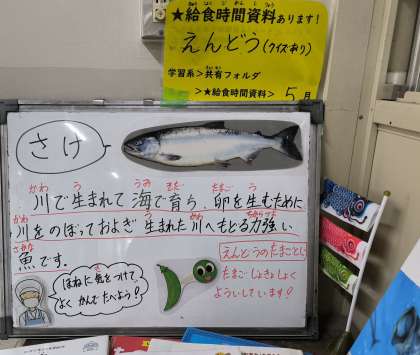 ★給食時間資料あります！
えんどう(クイズあり)
学習系>共有フォルダ
>★給食時間資料> 5月
さけ
川で生まれて海で育ち、卵を生むために
川をのぼっておよぎ生まれた川へもどる力強い
魚です。
ほねに気をつけて
よくかんでたべよう！
えんどうのたまごとじ
たまごしょきょしょく
よういしています！